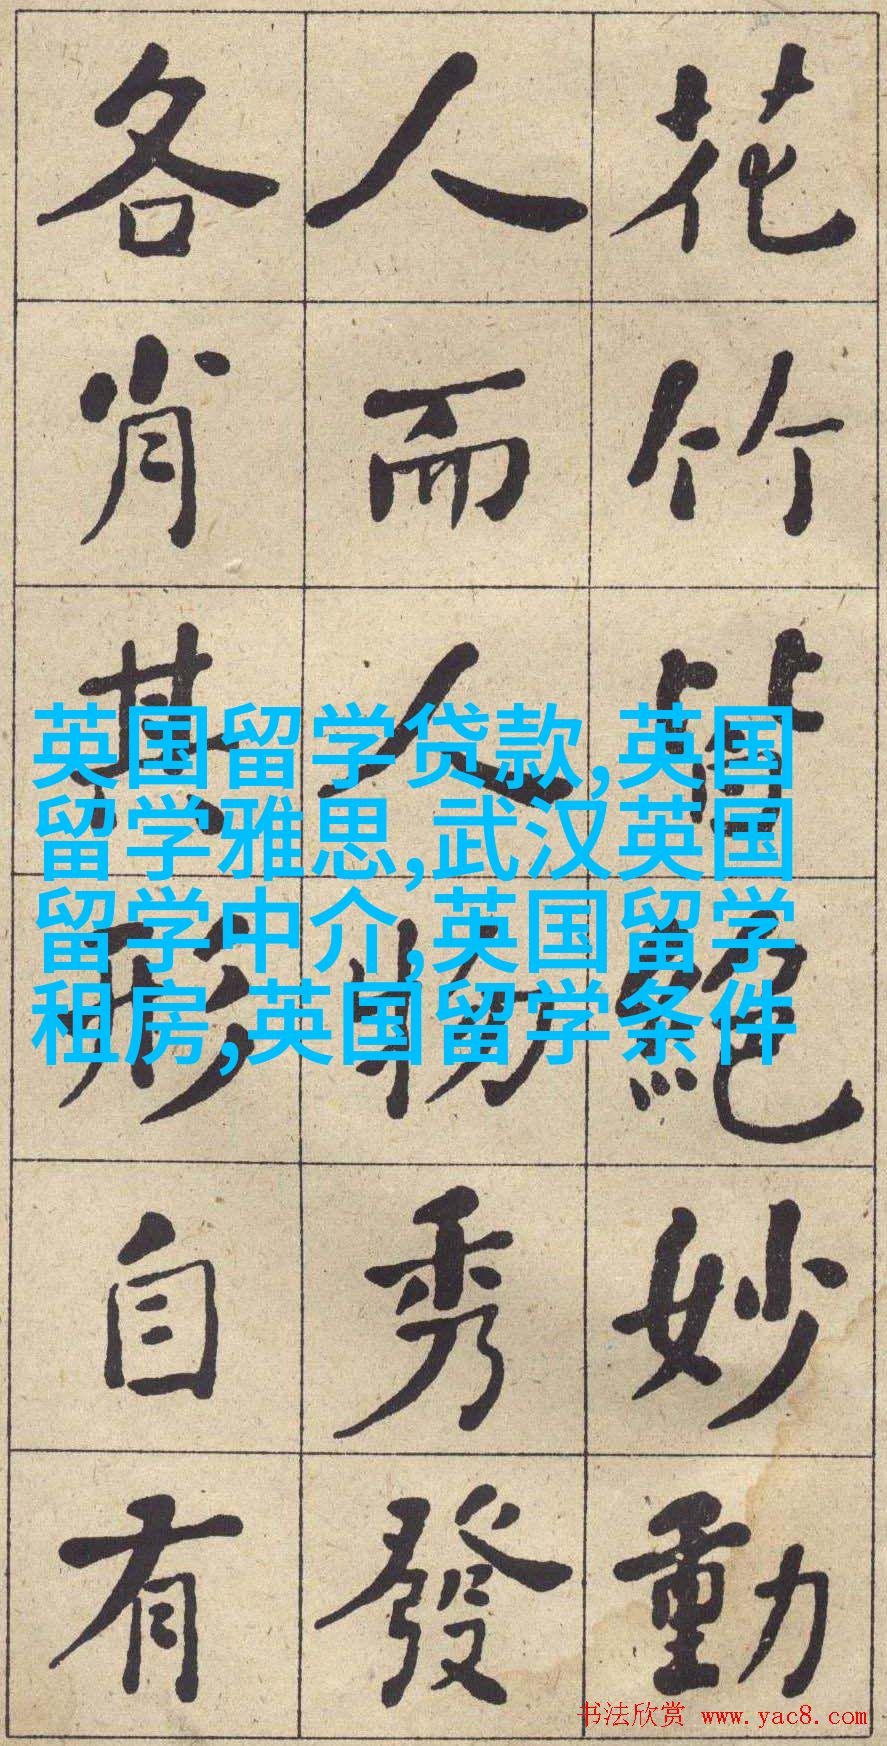 花竹皆絕妙動
人而人物秀發
各肖其形自有
英国留学贷款,英国
留学雅思,武汉英国
留学中介,英国留学
租房,英国留学条件
书法欣赏 www.yac8.com